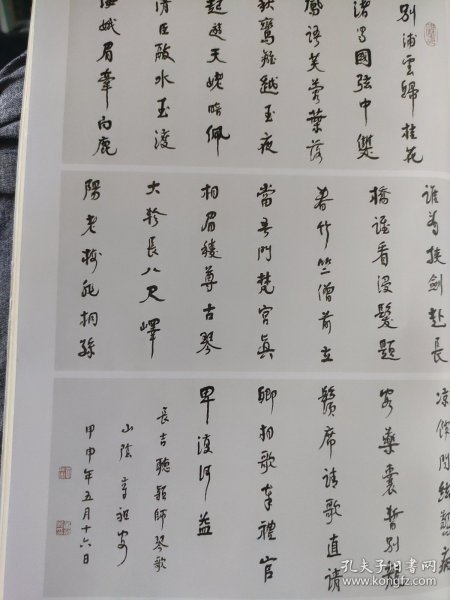 別浦雲歸桂花
渚蜀國弦中雙
鳳語芙蓉葉落
秋鸞離越王夜
起遊天姥暗佩
清臣敲水玉渡
海娥眉牽白鹿
誰看挾劍赴長
橋誰看浸髮題
春竹竺僧前立
當吾門梵宮真
相眉稜尊古琴
大軫長八尺嶧
陽老樹非桐孫
涼館聞弦驚病
客藥囊暫別龍
鬚席請歌直請
卿相歌奉禮官
卑復何益
長吉聽穎師琴歌
山陰
甲申年五月十六日
孔夫子旧书网